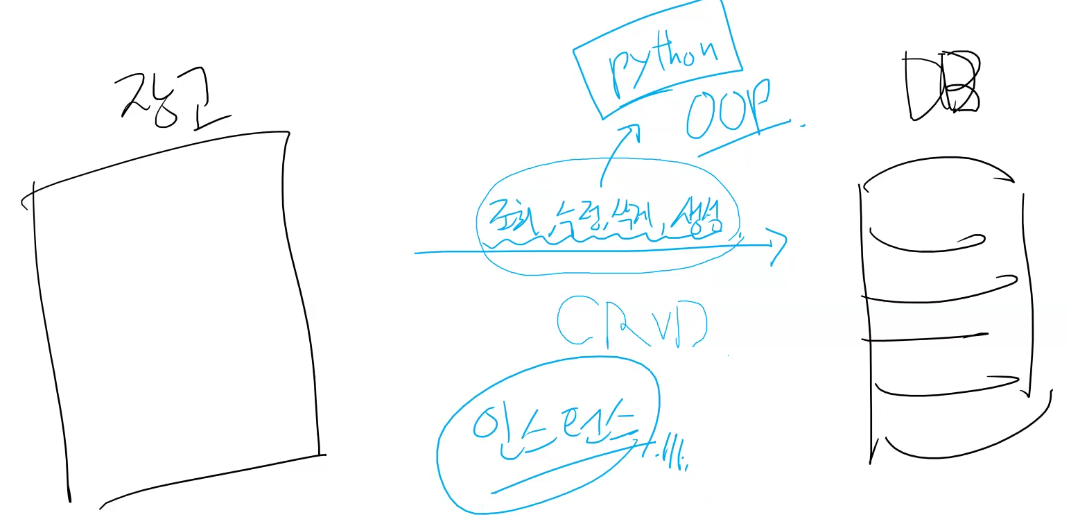 장고
python
OOP.
DB
조회, 수정, 삭제, 생성
CRUD
인스턴스